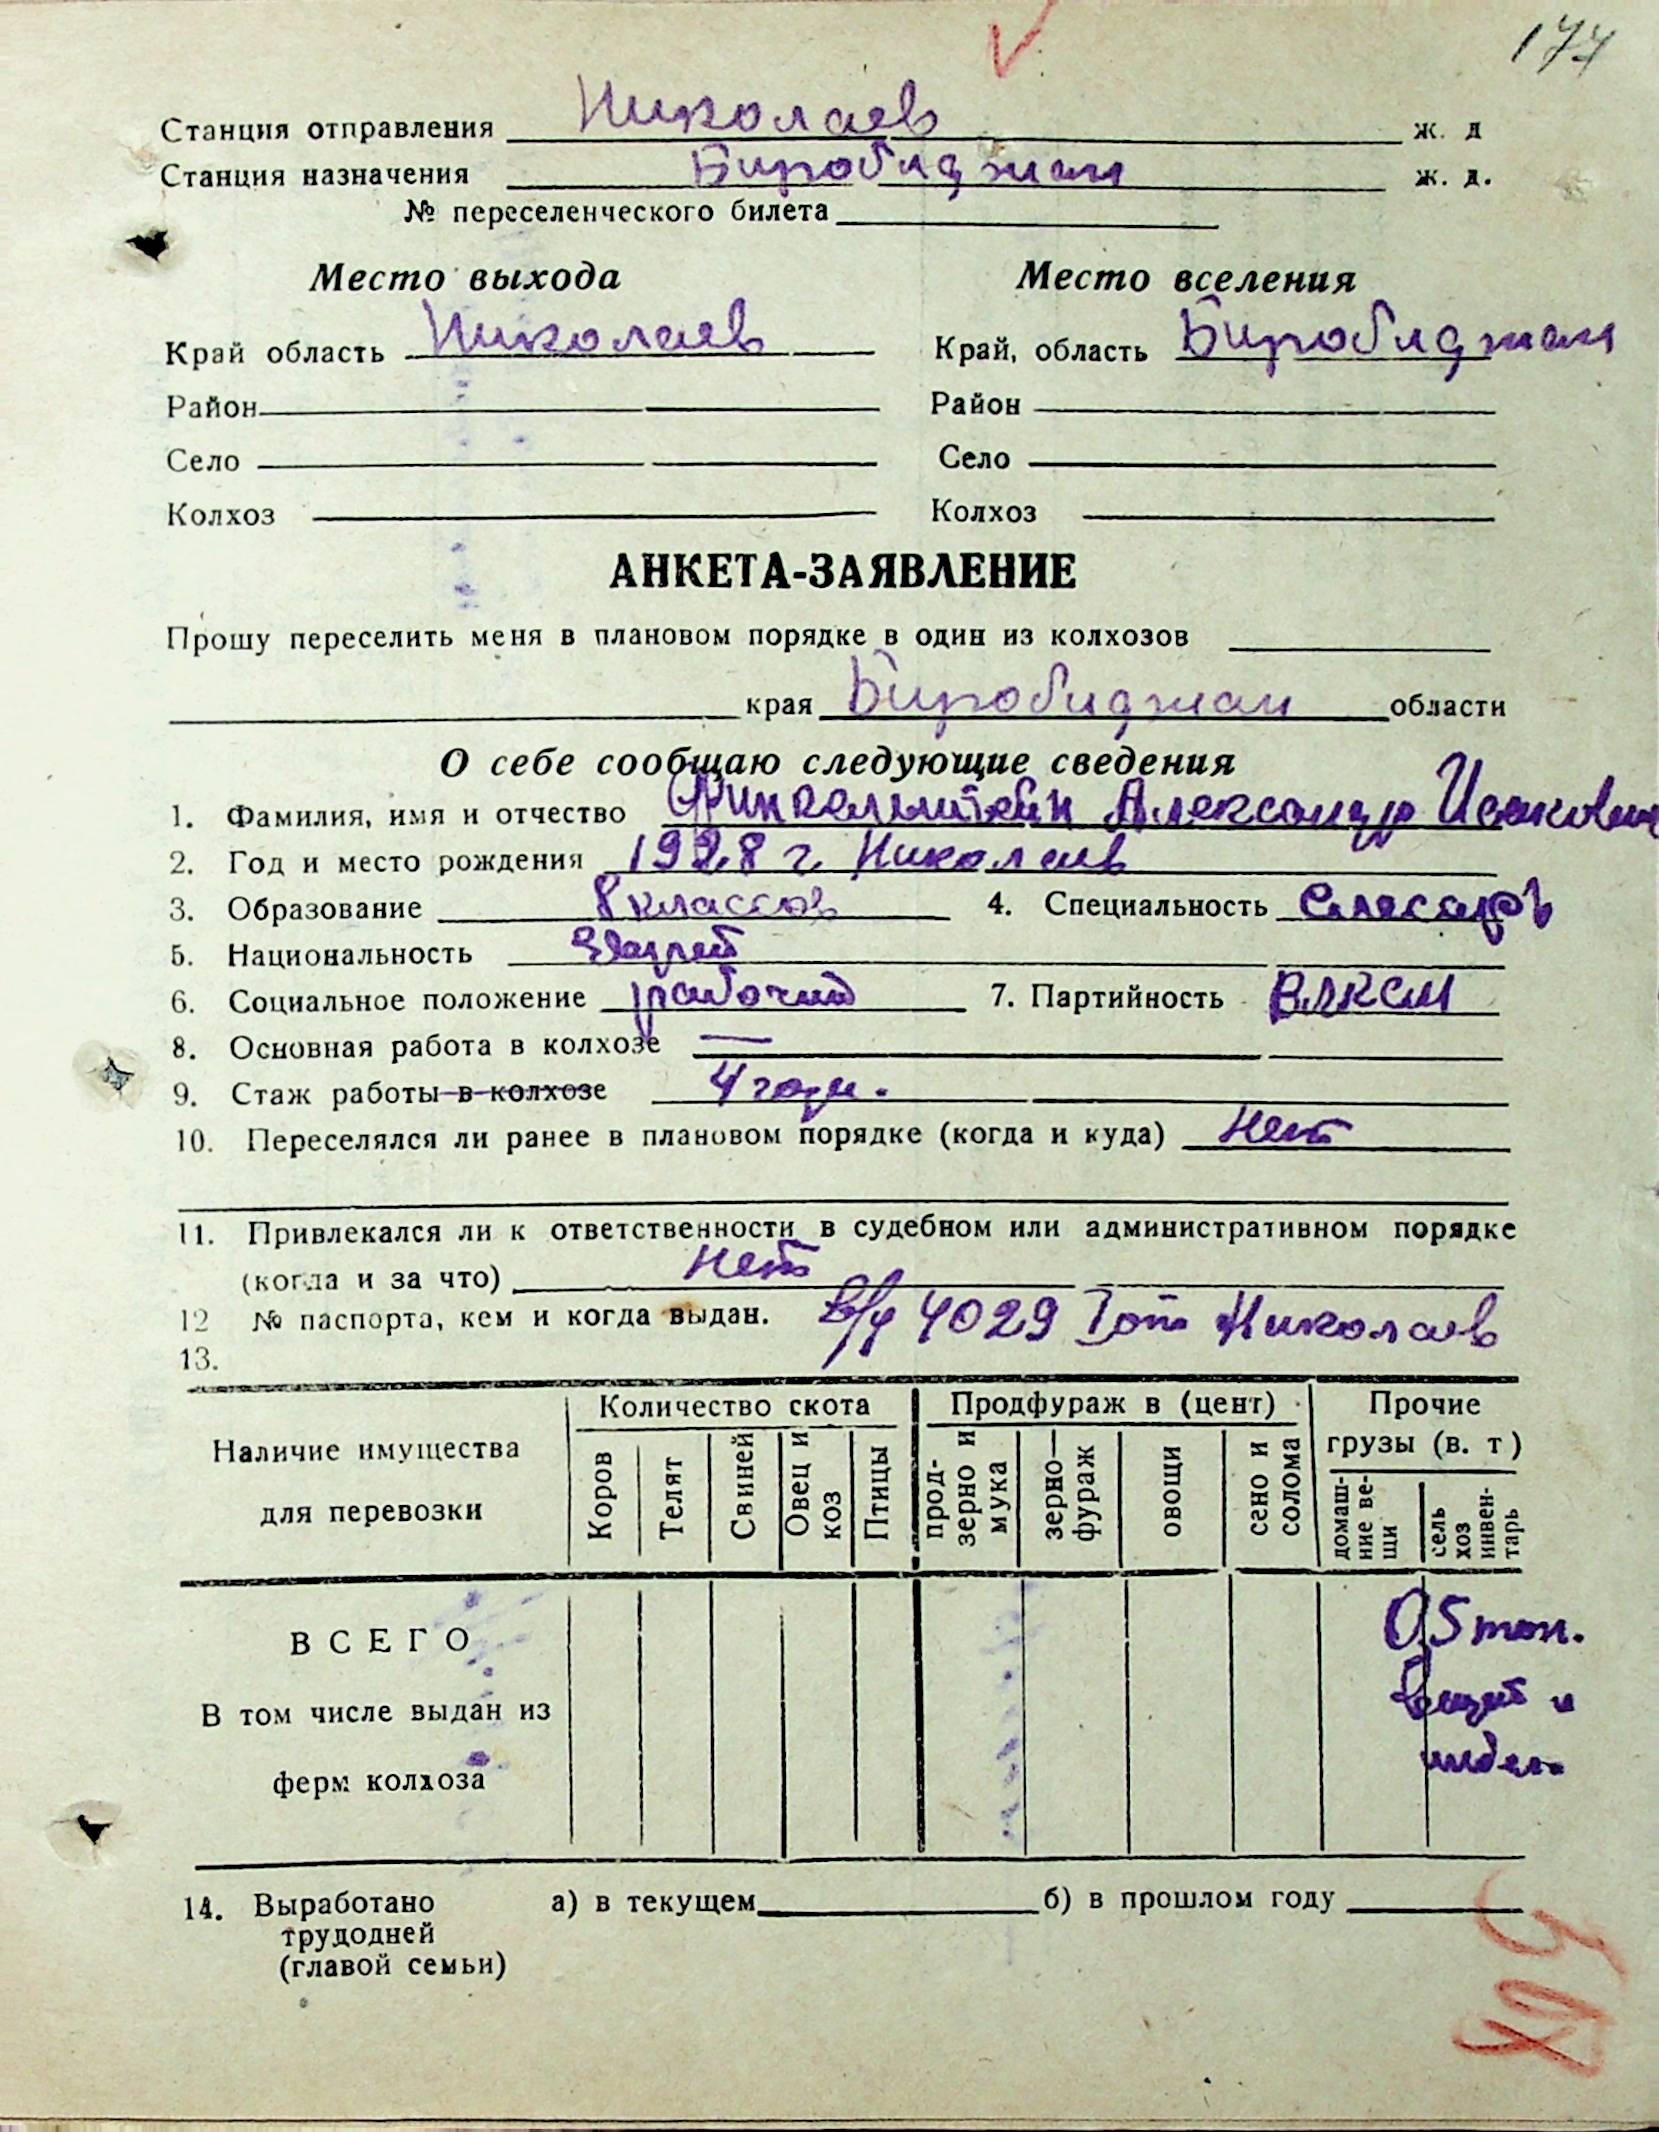 177
Станция отправления Николаев ж. д
Станция назначения Биробиджан ж. д.
№ переселенческого билета
Место выхода Место вселения
Край область Николаев Край, область Биробиджан
Район Район
Село Село
Колхоз Колхоз
АНКЕТА-ЗАЯВЛЕНИЕ
Прошу переселить меня в плановом порядке в один из колхозов
края Биробиджан области
О себе сообщаю следующие сведения
1. Фамилия, имя и отчество Финкельштейн Александр Исакович
2. Год и место рождения 1928 г. Николаев
3. Образование 8 классов 4. Специальность слесарь
5. Национальность Еврей
6. Социальное положение рабочий 7. Партийность ВЛКСМ
8. Основная работа в колхозе —
9. Стаж работы в колхозе 4 года.
10. Переселялся ли ранее в плановом порядке (когда и куда) Нет
11. Привлекался ли к ответственности в судебном или административном порядке
(когда и за что) Нет
12 № паспорта, кем и когда выдан. 4029 Николаев
13.
Наличие имущества для перевозки Количество скота Продфураж в (цент) Прочие грузы (в. т)
Коров Телят Свиней Овец и коз Птицы прод-зерно и мука зерно—фураж овощи сено и солома домаш-ние ве-щи сель хоз инвен-тарь
ВСЕГО 0,5 тон.
вещей и
В том числе выдан из
ферм колхоза
14. Выработано а) в текущем б) в прошлом году
трудодней
(главой семьи)